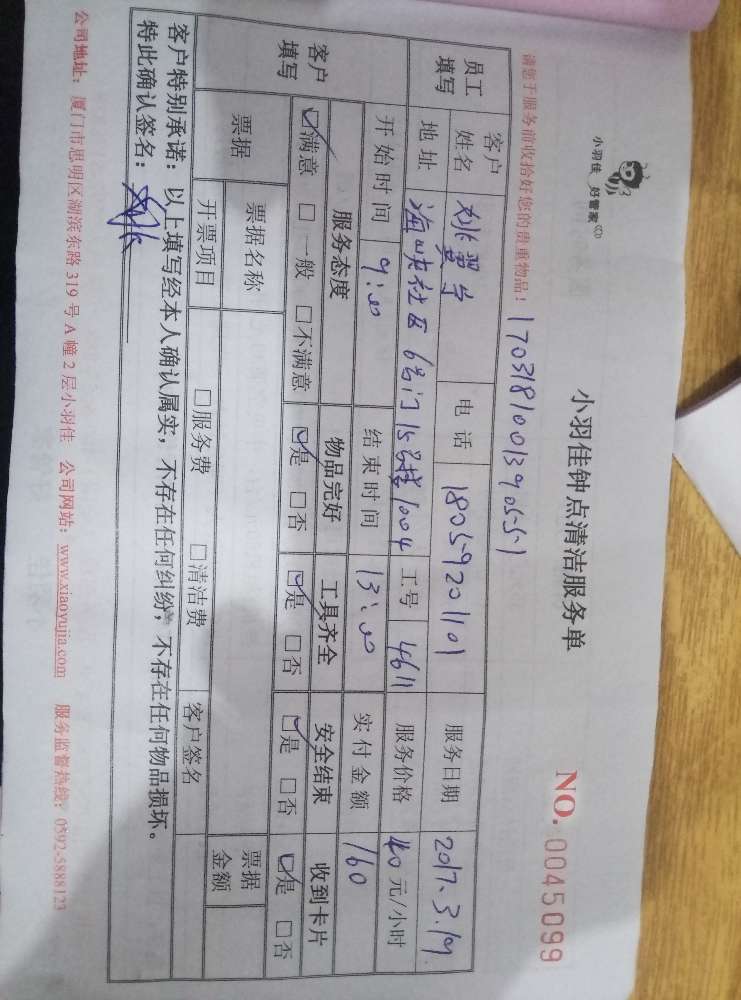 小羽佳 好管家
小羽佳钟点清洁服务单
NO. 0045099
请您于服务前收拾好您的贵重物品！ 170318100139055-1
员工填写 客户姓名 电话 18059201101 服务日期 2017.3.19.
地址 海峡社区6号门15号楼1004 工号 4611 服务价格 40 元/小时
客户填写 开始时间 9:00 结束时间 13:00 实付金额 160
服务态度 物品完好 工具齐全 安全结束 收到卡片
☑满意 □一般 □不满意 ☑是 □否 ☑是 □否 ☑是 □否 ☑是 □否
票据 票据名称 票据金额
开票项目 □服务费 □清洁费 客户签名
客户特别承诺：以上填写经本人确认属实，不存在任何纠纷，不存在任何物品损坏。
特此确认签名：
公司地址：厦门市思明区湖滨东路319号A幢2层小羽佳 公司网站：www.xiaoyujia.com 服务监督热线：0592-5888123